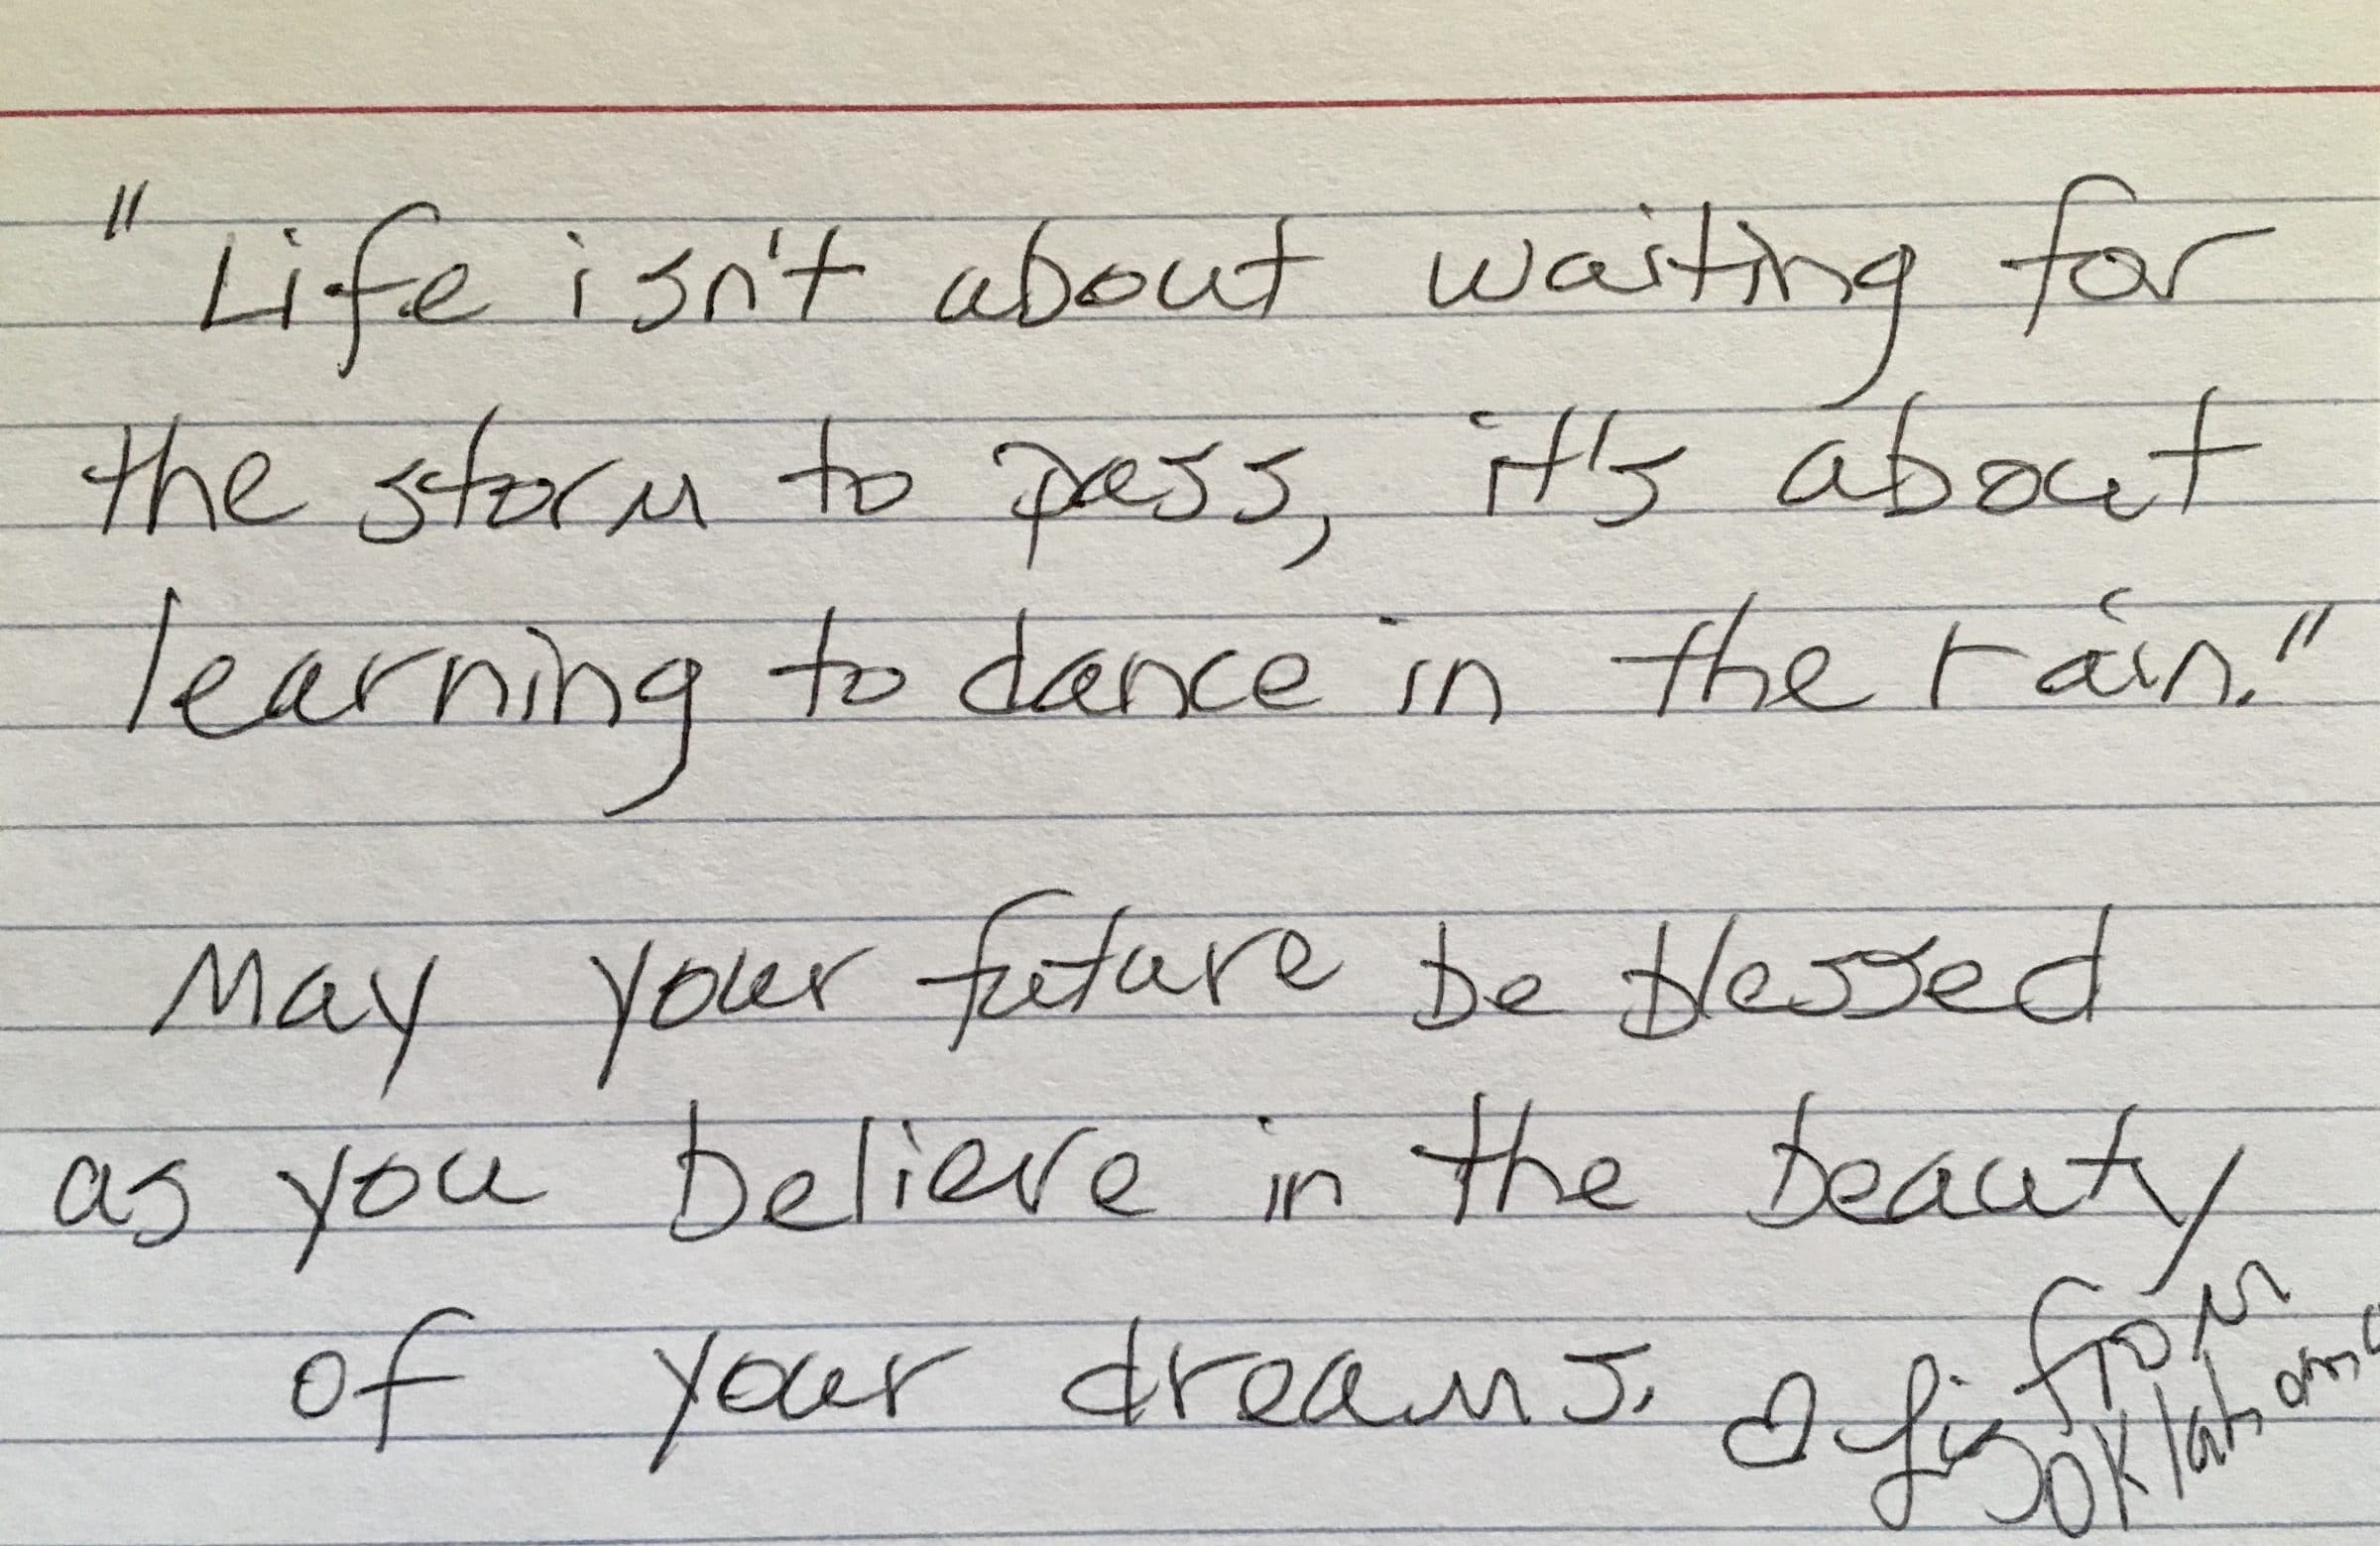 "Life isn't about waiting for
the storm to pass, it's about
learning to dance in the rain."
May your future be blessed
as you believe in the beauty
of your dreams. ♡ Liz from
Oklahoma